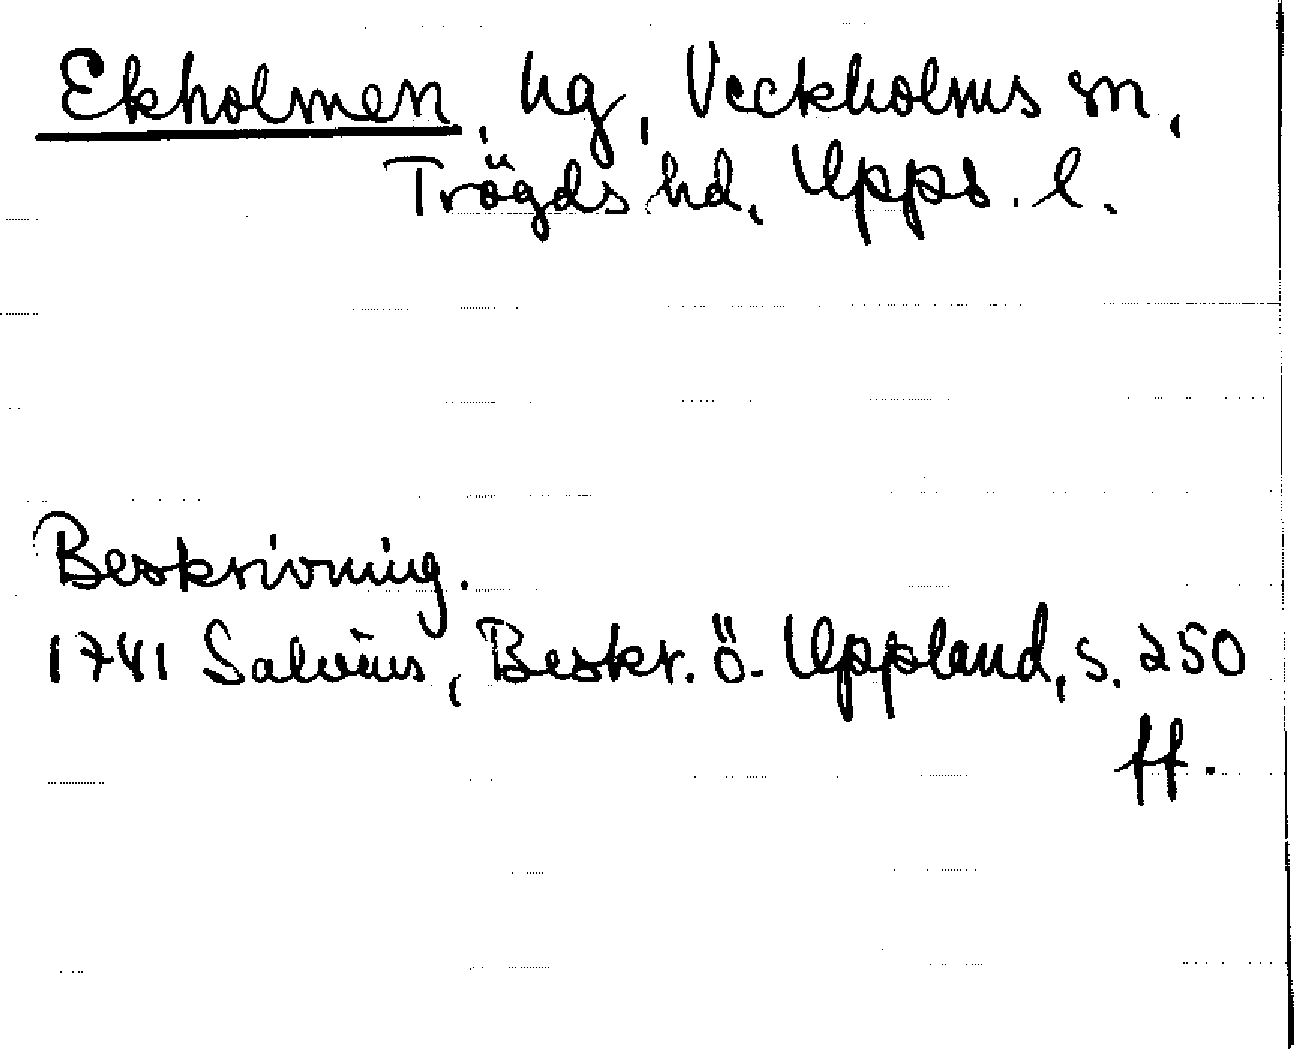 Ekholmen, hg, Veckholms sn,
Trögds hd, Upps. l.
Beskrivning.
1741 Salvius, Beskr. ö. Uppland, s. 250
ff.